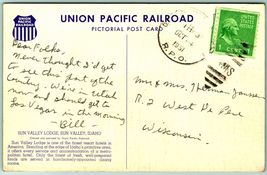 UNION PACIFIC RAILROAD
PICTORIAL POST CARD
UNION PACIFIC
Dear Folks,
Never thought I'd get
to see this part of the
country. We're in Utah
now and should get to
Las Vegas in the morning
Bill -
SUN VALLEY LODGE, SUN VALLEY, IDAHO
Sun Valley Lodge is one of the finest resort hotels in
America. Standing at the edge of Idaho's primitive area,
it offers every service and accommodation of a metro-
politan hotel. Only the finest of fresh, well-prepared
foods are served in tastefully-appointed dining
rooms.
OCT
R.P.O.
1 CENT
Mr & Mrs Thomas
R. 2 West De Pere
Wisconsin